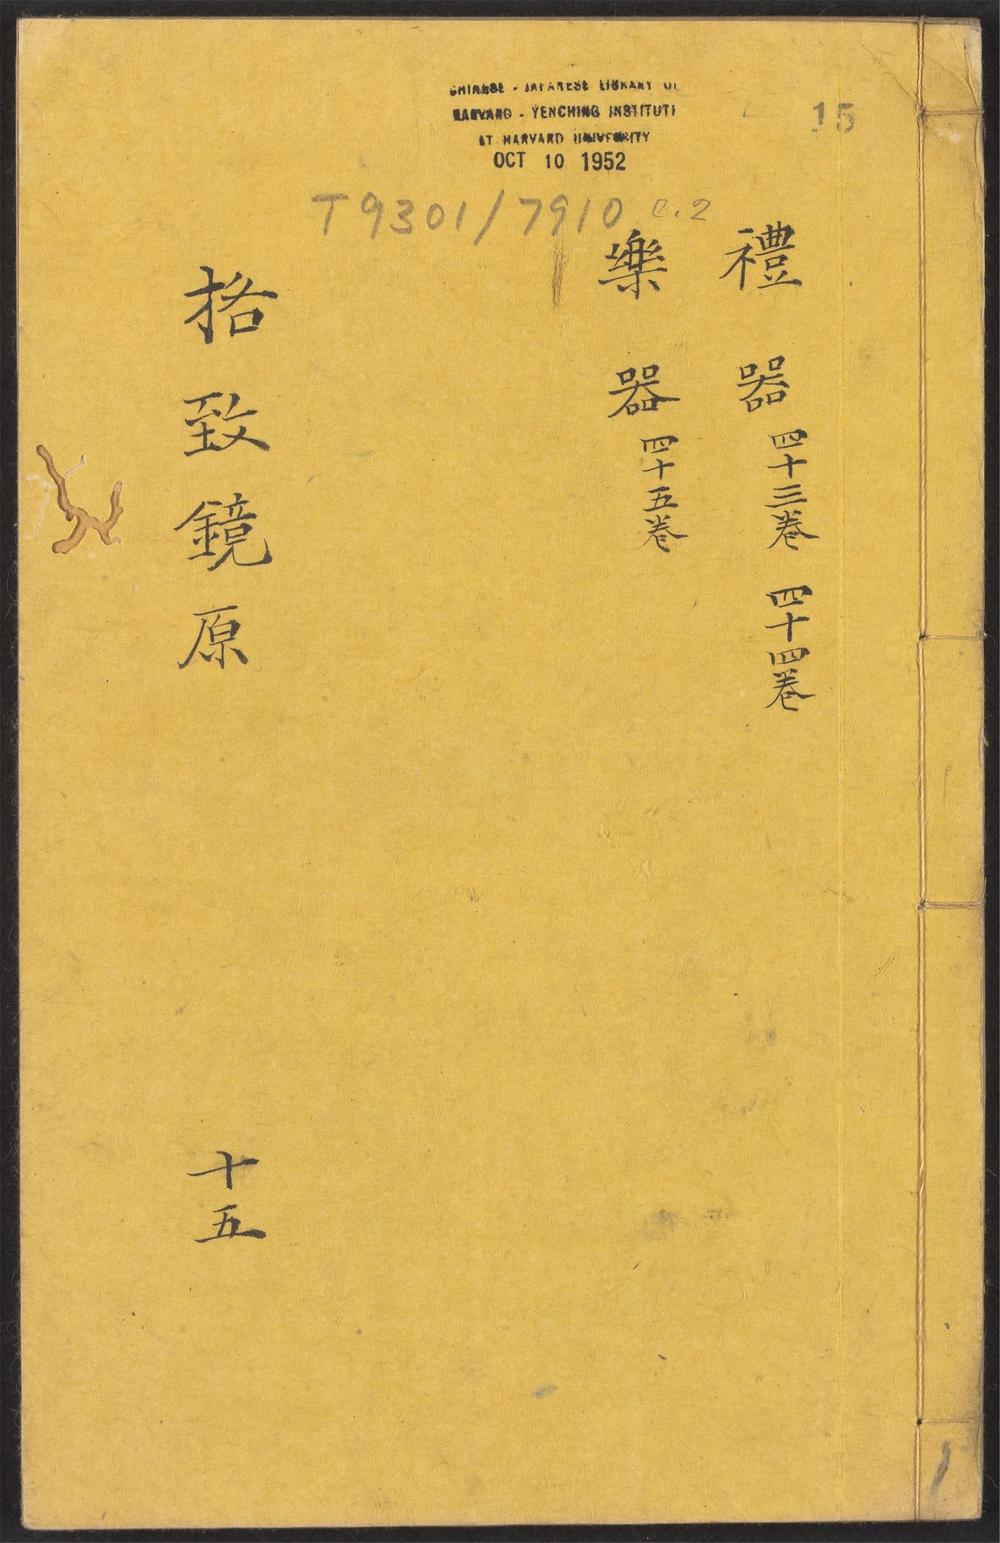 CHINESE - JAPANESE LIBRARY OF
HARVARD - YENCHING INSTITUTE
AT HARVARD UNIVERSITY
OCT 10 1952
15
T9301/7910 c.2
禮器 四十三卷 四十四卷
樂器 四十五卷
格致鏡原
十五